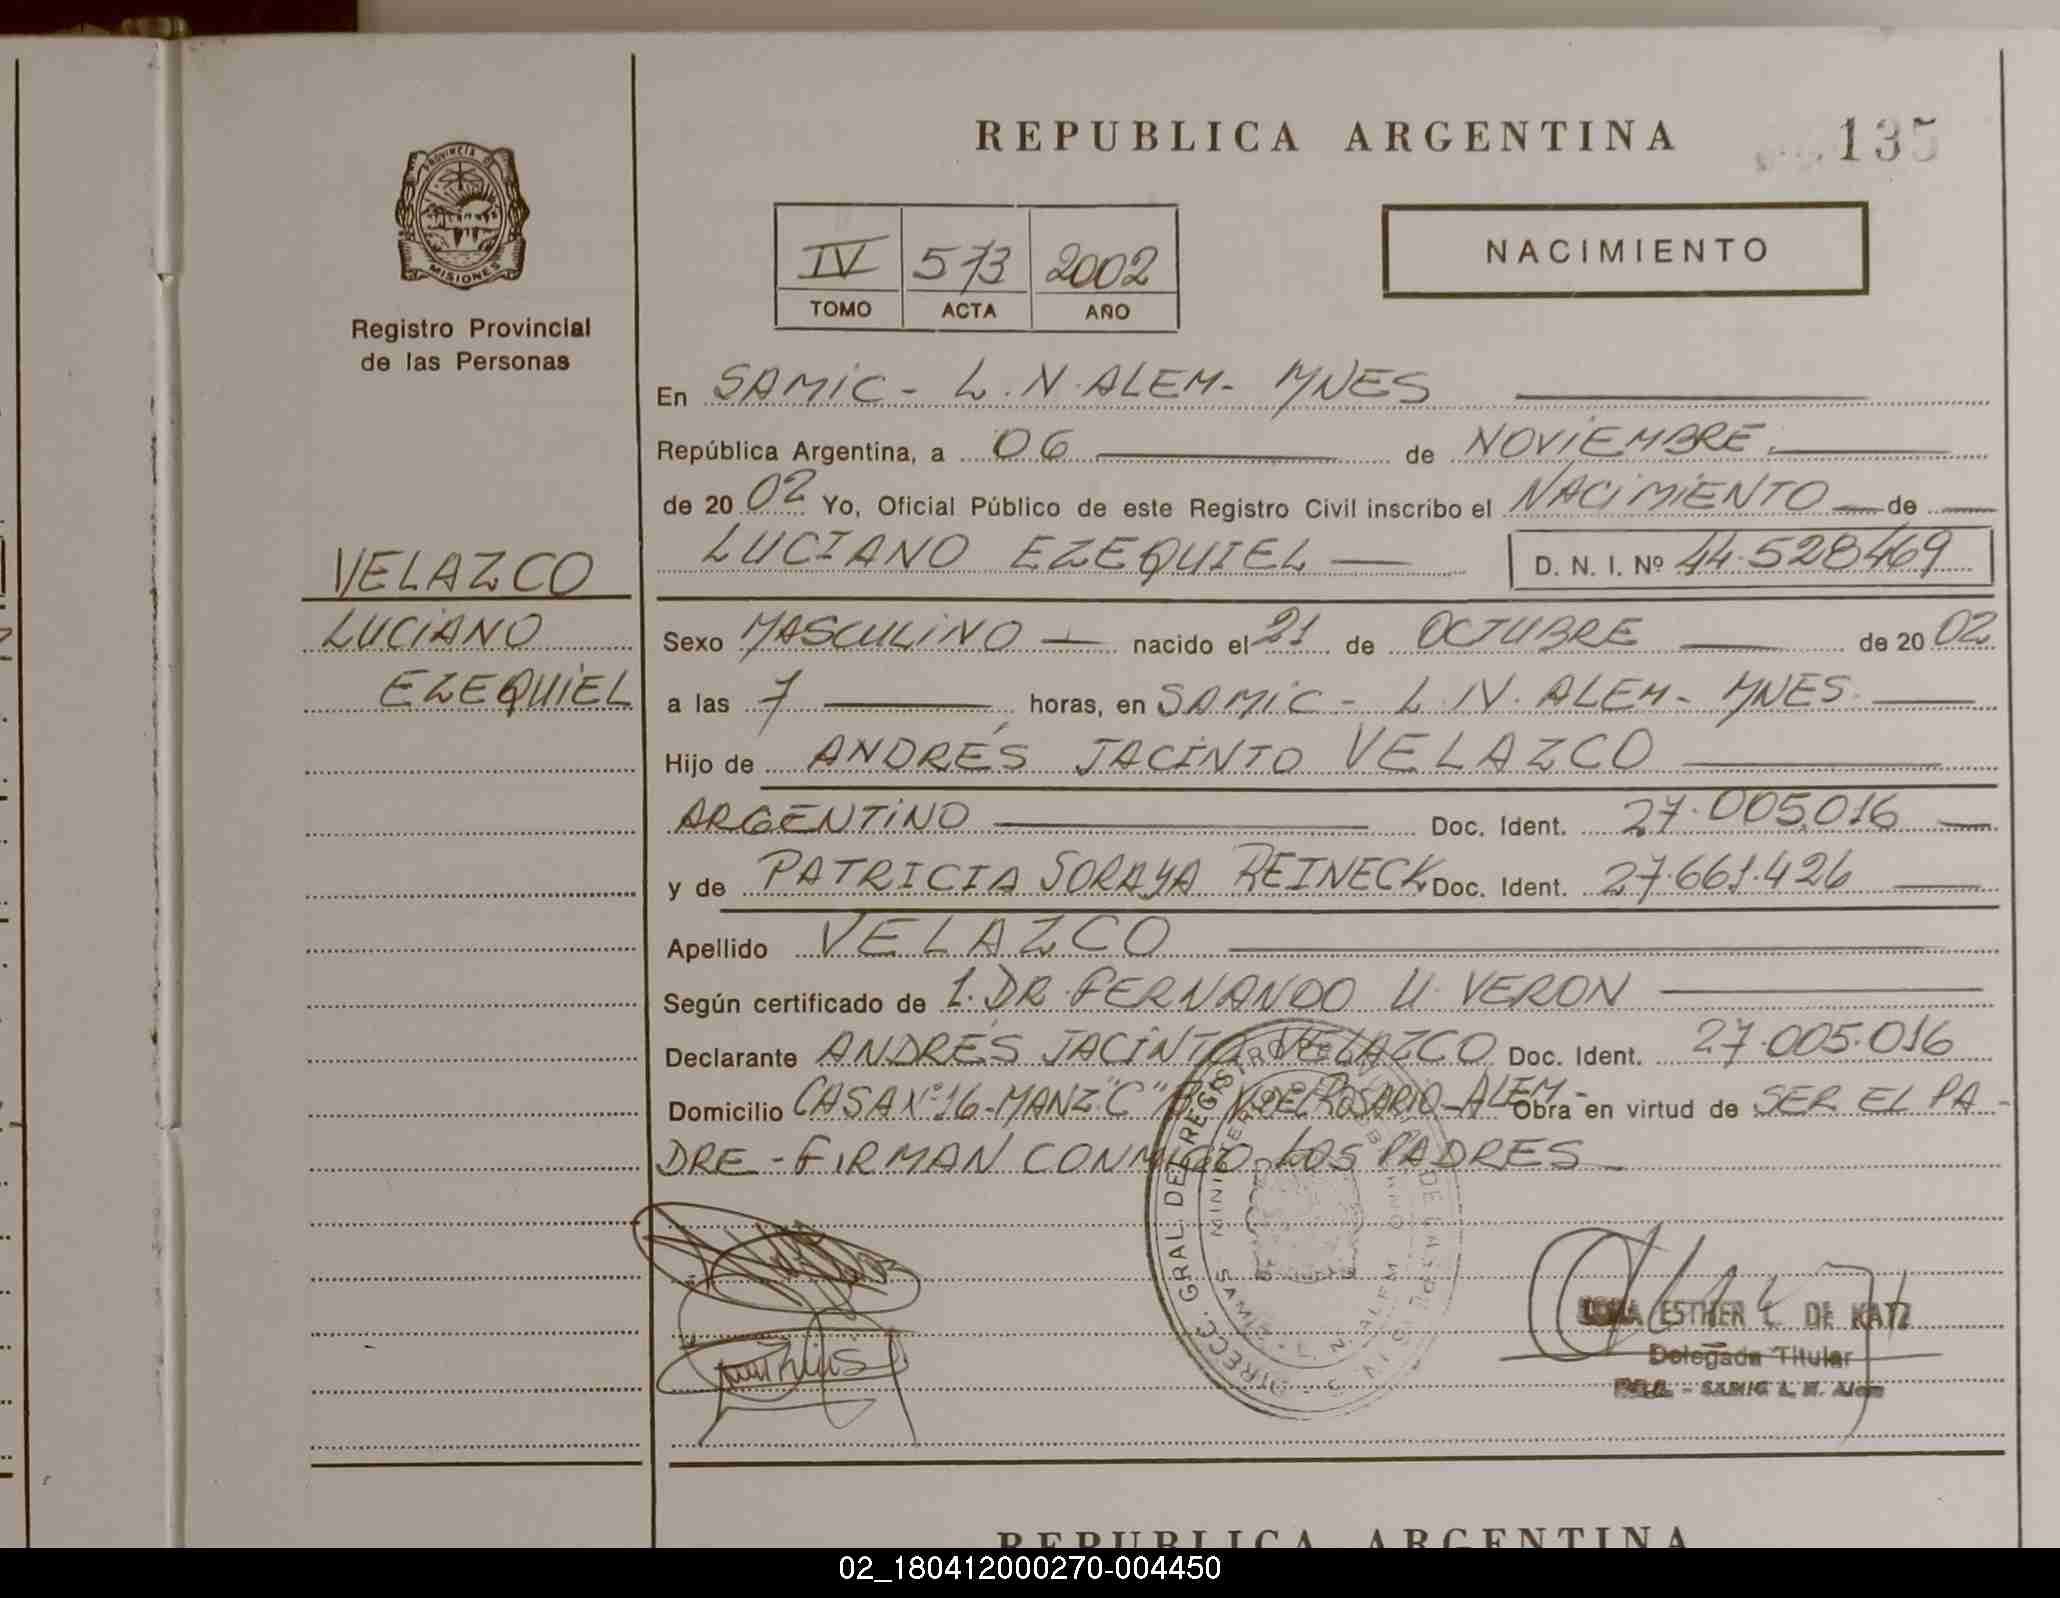 REPUBLICA ARGENTINA
135
PROVINCIA DE
MISIONES
Registro Provincial
de las Personas
IV 573 2002
TOMO ACTA AÑO
NACIMIENTO
En SAMIC - L.N. ALEM - MNES
República Argentina, a 06 de NOVIEMBRE
de 2002 Yo, Oficial Público de este Registro Civil inscribo el NACIMIENTO de
LUCIANO EZEQUIEL D. N. I. Nº 44.528469
VELAZCO
LUCIANO
EZEQUIEL
Sexo MASCULINO nacido el 21 de OCTUBRE de 2002
a las 7 horas, en SAMIC - L.N. ALEM - MNES.
Hijo de ANDRÉS JACINTO VELAZCO
ARGENTINO Doc. Ident. 27.005.016
y de PATRICIA SORAYA REINECK Doc. Ident. 27.661.426
Apellido VELAZCO
Según certificado de 1. DR. FERNANDO U. VERON
Declarante ANDRÉS JACINTO VELAZCO Doc. Ident. 27.005.016
Domicilio CASA Nº 16 - MANZ "C" Bº V. DEL ROSARIO - ALEM - Obra en virtud de SER EL PA-
DRE - FIRMAN CONMIGO LOS PADRES -
DIRECC. GRAL. DEL REGISTRO
SAMIC - L. N. ALEM
ESTHER L. DE KATZ
Delegada Titular
SAMIC L. N. Alem
REPUBLICA ARGENTINA
02_180412000270-004450